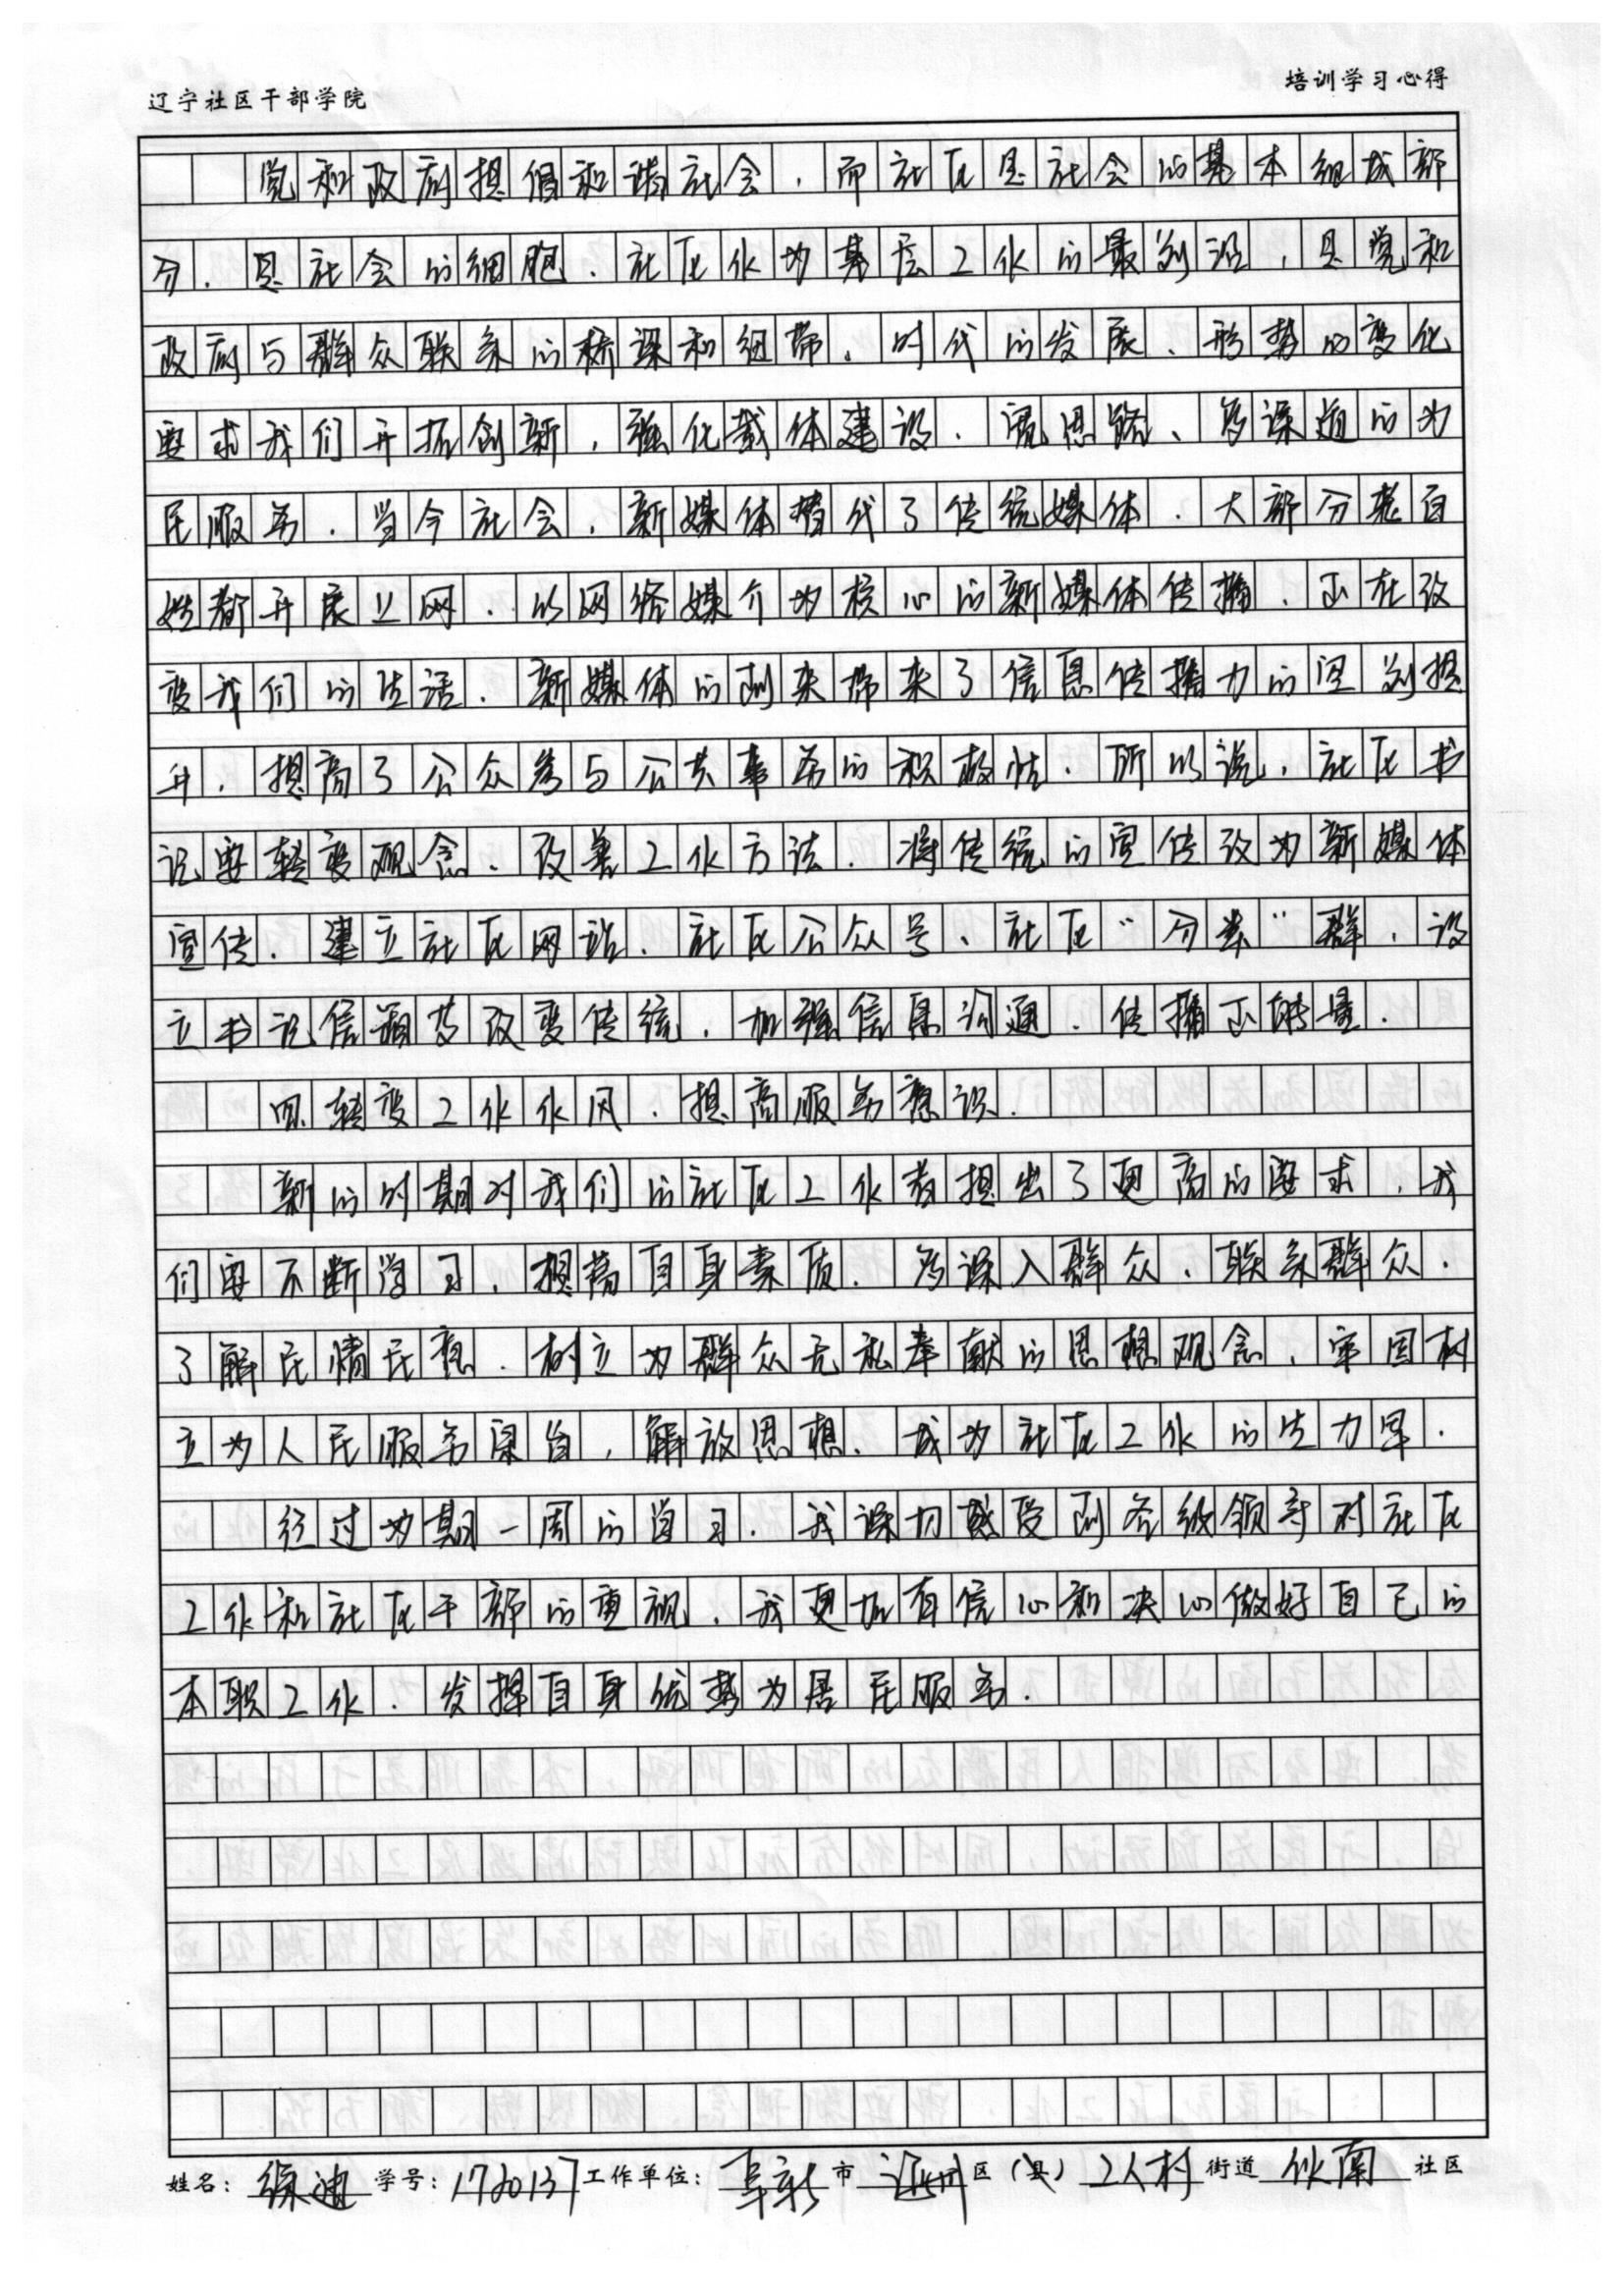 辽宁社区干部学院
培训学习心得
党和政府提倡和谐社会，而社区是社会的基本组成部
分，是社会的细胞，社区作为基层工作的最前沿，是党和
政府与群众联系的桥梁和纽带，时代的发展、形势的变化
要求我们开拓创新，强化载体建设、宽思路、多渠道的为
民服务．当今社会，新媒体替代了传统媒体．大部分老百
姓都开展立网．以网络媒介为核心的新媒体传播，正在改
变我们的生活．新媒体的到来带来了信息传播力的空前提
升，提高了公众参与公共事务的积极性，所以说，社区书
记要转变观念、改善工作方法．将传统的宣传改为新媒体
宣传．建立社区网站、社区公众号、社区“分类”群，设
立书记信箱等改变传统，加强信息沟通．传播正能量．
四.转变工作作风．提高服务意识．
新的时期对我们的社区工作者提出了更高的要求，我
们要不断学习，提高自身素质．多深入群众、联系群众．
了解民情民意．树立为群众无私奉献的思想观念，牢固树
立为人民服务宗旨，解放思想、成为社区工作的生力军．
经过为期一周的学习．我深切感受到各级领导对社区
工作和社区干部的重视．我更加有信心和决心做好自己的
本职工作．发挥自身优势为居民服务．
姓名：徐迪 学号：1720137 工作单位：阜新 市 区（县） 工人村 街道 作南 社区